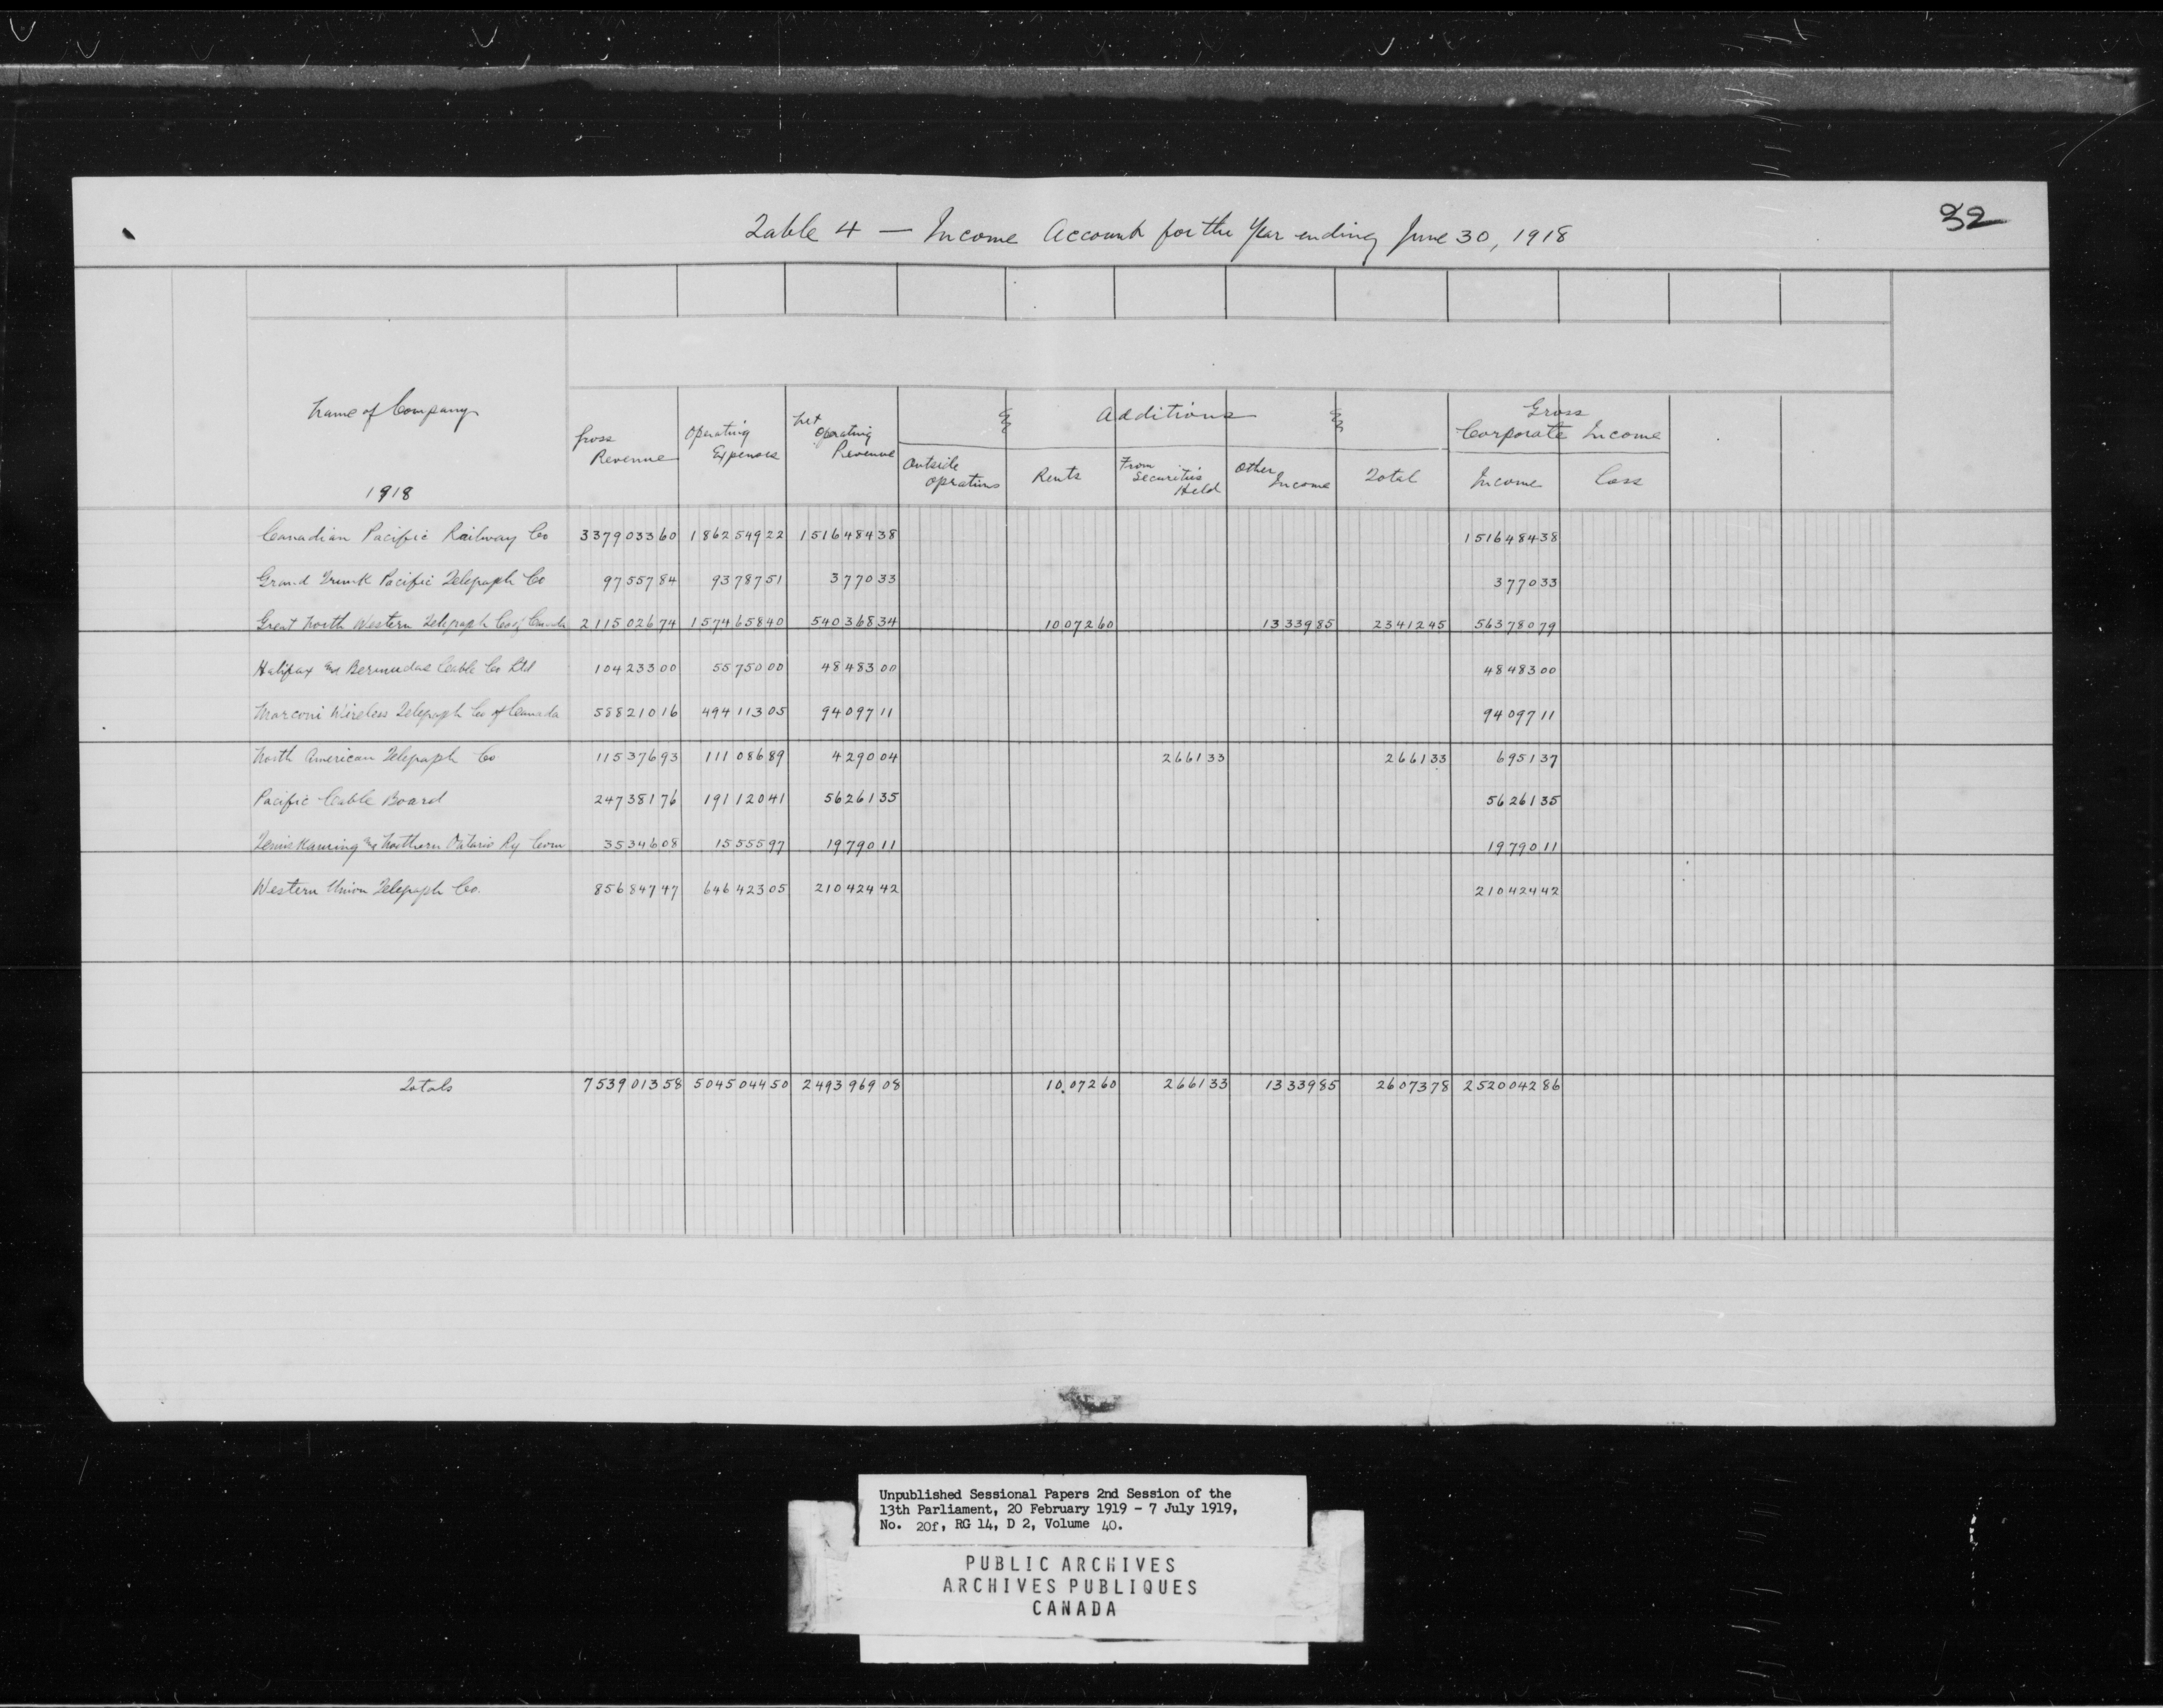 32
Table 4 — Income Account for the Year ending June 30, 1918
Name of Company
1918
Gross Revenue
Operating Expenses
Net Operating Revenue
Additions
Outside Oprations
Rents
From Securities Held
Other Income
Total
Gross Corporate Income
Income
Loss
Canadian Pacific Railway Co 337903360 186254922 151648438 151648438
Grand Trunk Pacific Telegraph Co 9755784 9378751 377033 377033
Great North Western Telegraph Co of Canada 211502674 157465840 54036834 1007260 1333985 2341245 56378079
Halifax & Bermudas Cable Co Ltd 10423300 5575000 4848300 4848300
Marconi Wireless Telegraph Co of Canada 58821016 49411305 9409711 9409711
North American Telegraph Co 11537693 11108689 429004 266133 266133 695137
Pacific Cable Board 24738176 19112041 5626135 5626135
Temiskaming & Northern Ontario Ry Com 3534608 1555597 1979011 1979011
Western Union Telegraph Co. 85684747 64642305 21042442 21042442
Totals 753901358 504504450 249396908 1007260 266133 1333985 2607378 252004286
Unpublished Sessional Papers 2nd Session of the
13th Parliament, 20 February 1919 - 7 July 1919,
No. 20f, RG 14, D 2, Volume 40.
PUBLIC ARCHIVES
ARCHIVES PUBLIQUES
CANADA